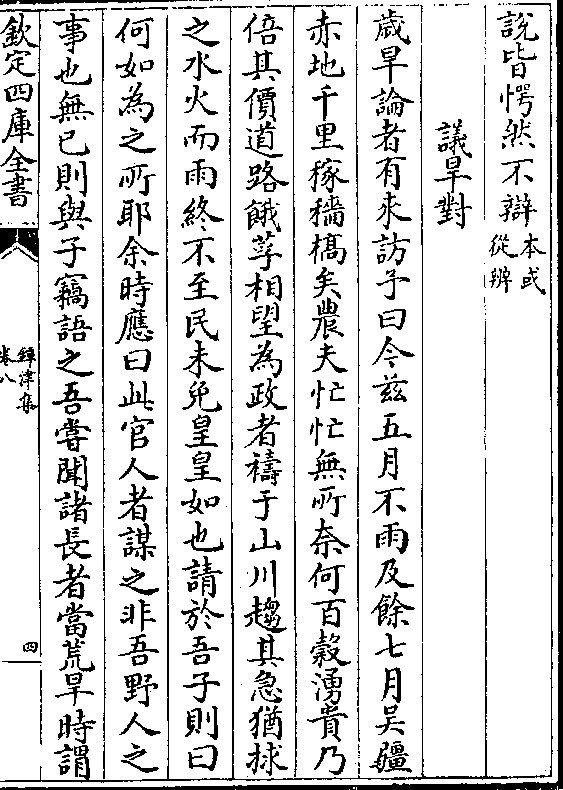 說皆愕然不辯本或從辨
議旱對
歳旱論者有來訪予曰今兹五月不雨及餘七月吳疆
赤地千里稼穡槁矣農夫忙忙無所奈何百榖湧貴乃
倍其價道路餓莩相望為政者禱于山川趨其急猶捄
之水火而雨終不至民未免皇皇如也請於吾子則曰
何如為之所耶余時應曰此官人者謀之非吾野人之
事也無已則與子竊語之吾嘗聞諸長者當荒旱時謂
欽定四庫全書
鐔津集
卷八
四